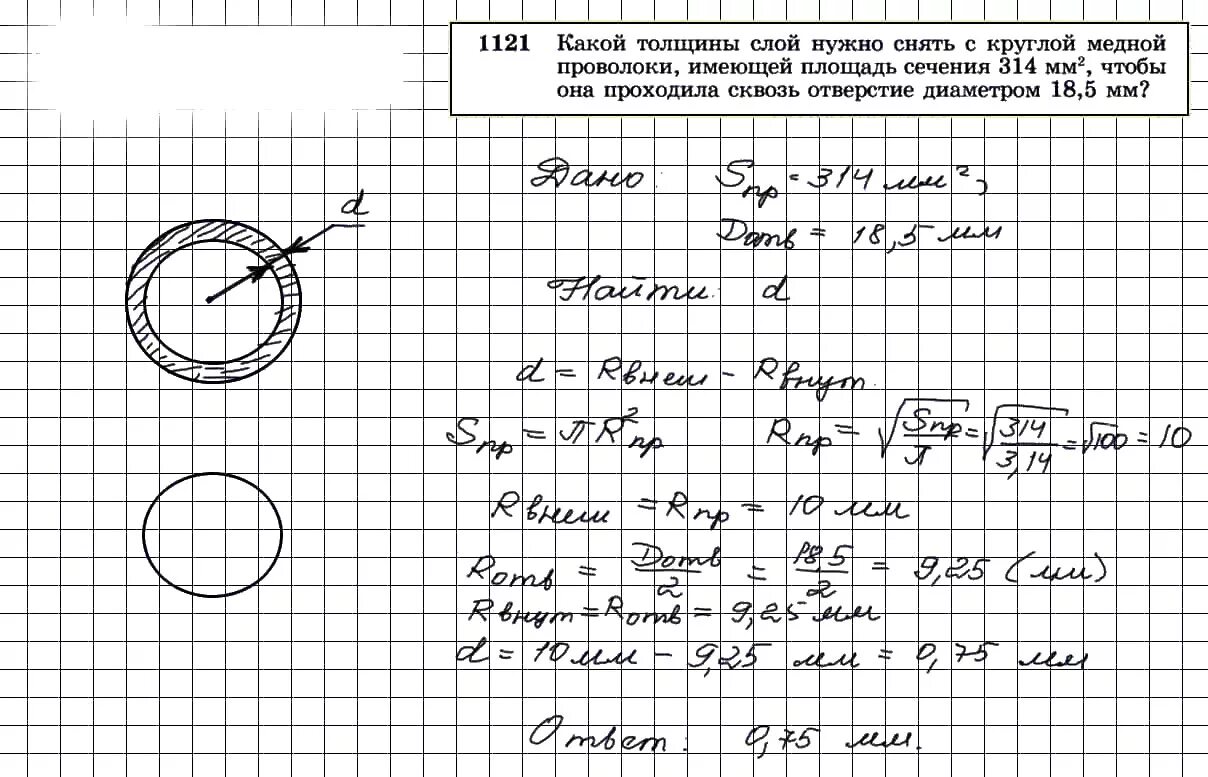 1121 Какой толщины слой нужно снять с круглой медной
проволоки, имеющей площадь сечения 314 мм², чтобы
она проходила сквозь отверстие диаметром 18,5 мм?
Дано: Sпр = 314 мм²,
Dотв = 18,5 мм
d
Найти: d
d = Rвнеш - Rвнут.
Sпр = πR²пр Rпр = √(Sпр/π) = √(314/3,14) = √100 = 10
Rвнеш = Rпр = 10 мм
Rотв = Dотв/2 = 18,5/2 = 9,25 (мм)
Rвнут = Rотв = 9,25 мм
d = 10 мм - 9,25 мм = 0,75 мм
Ответ: 0,75 мм.